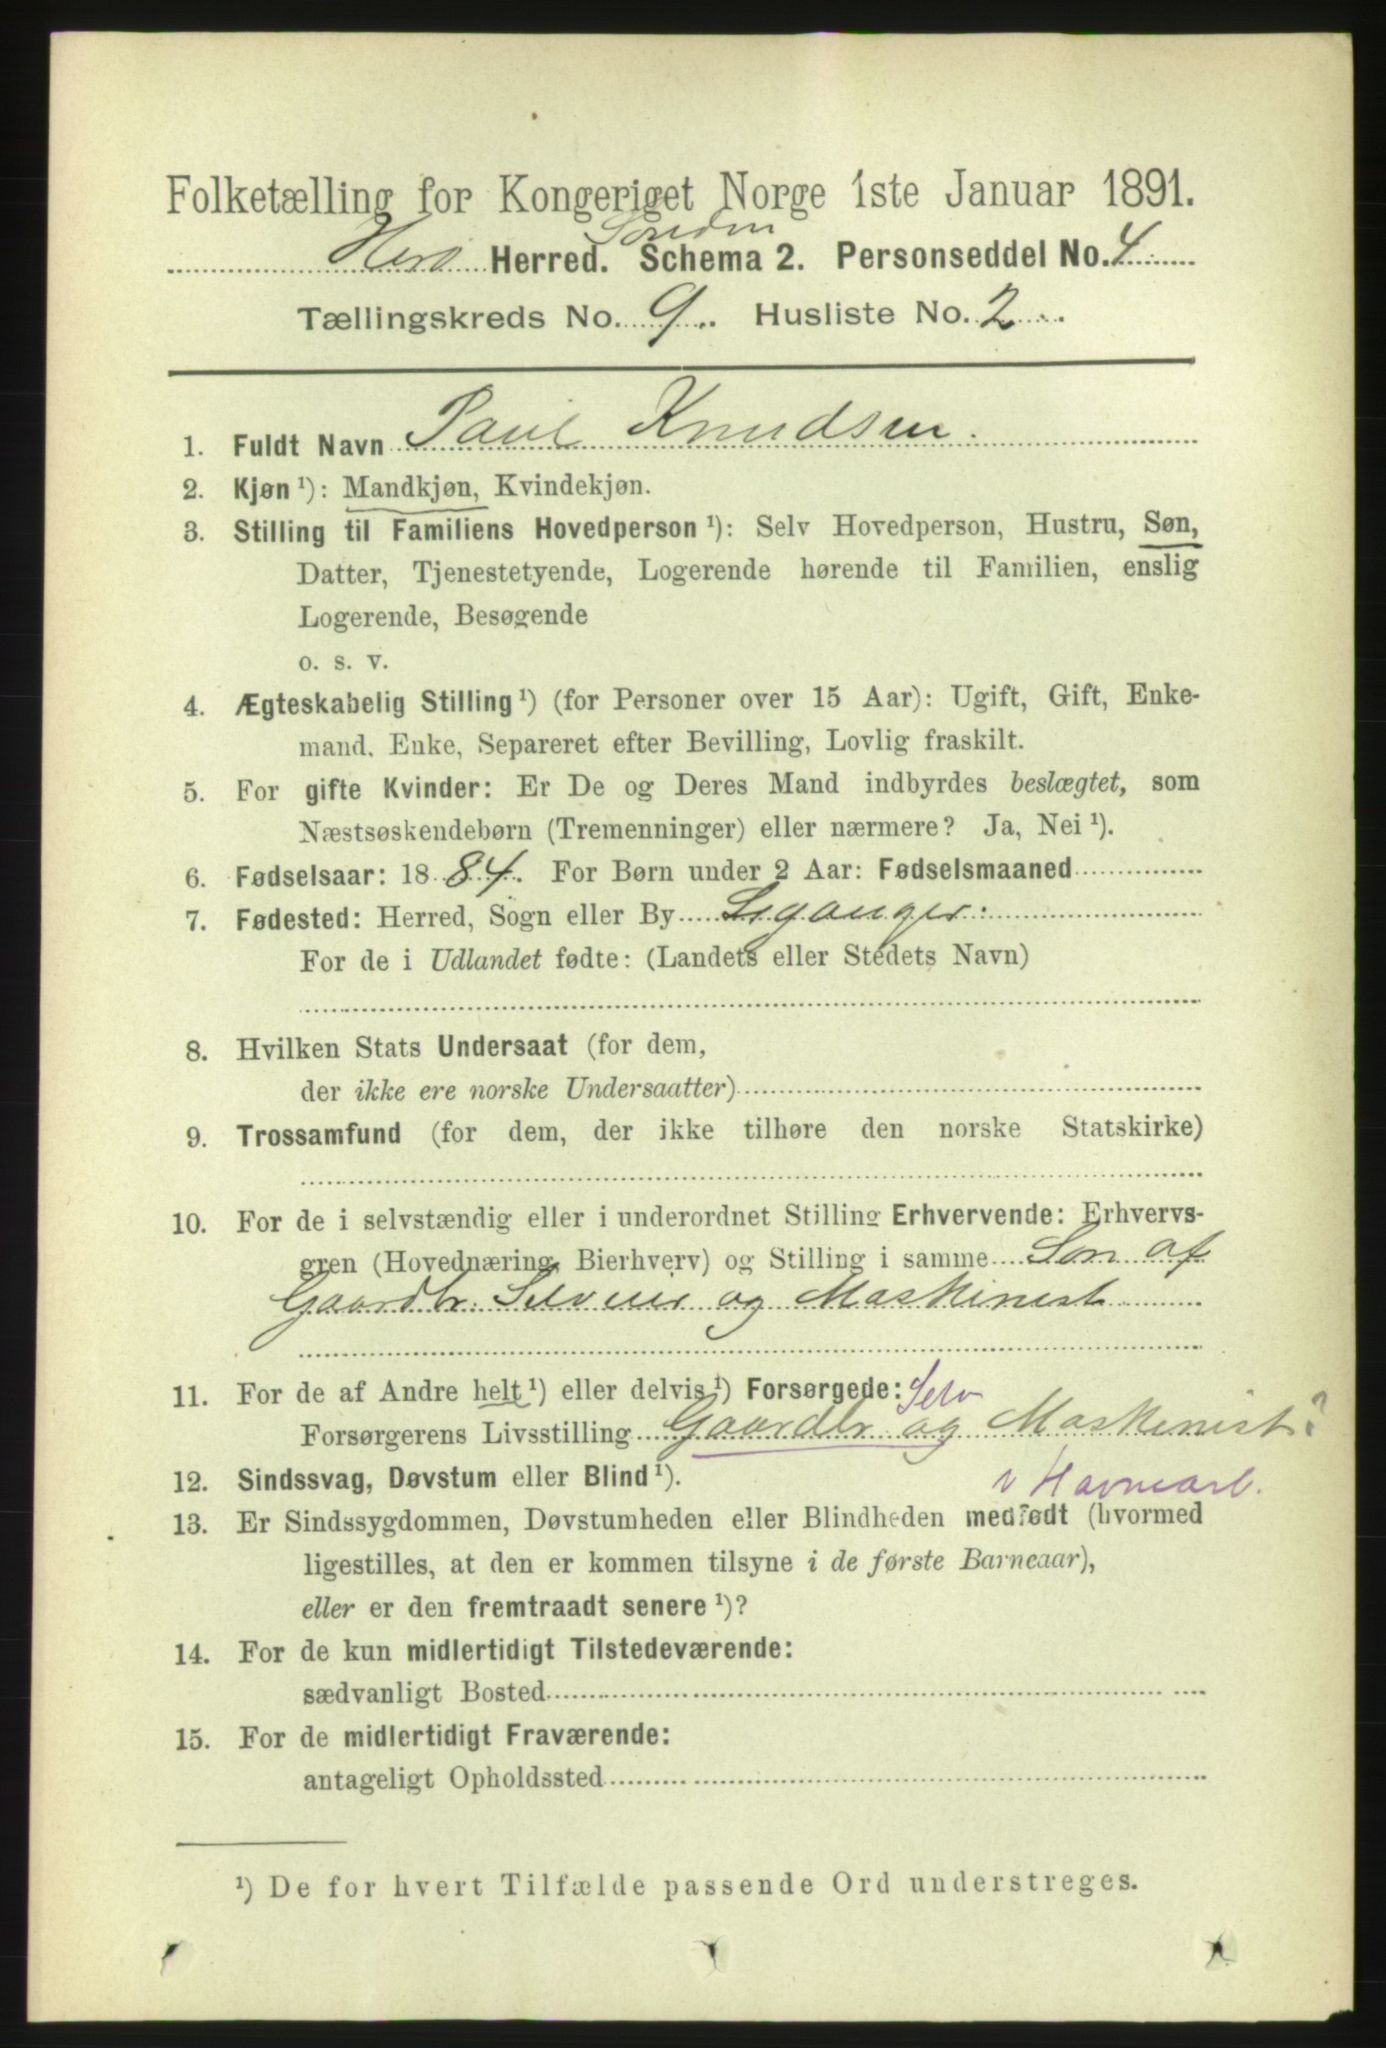 Folketælling for Kongeriget Norge 1ste Januar 1891.
Herö Herred. Schema 2. Personseddel No. 4
Tællingskreds No. 9. Husliste No. 2
1. Fuldt Navn Paul Knudsen.
2. Kjøn ¹): Mandkjøn, Kvindekjøn.
3. Stilling til Familiens Hovedperson ¹): Selv Hovedperson, Hustru, Søn,
Datter, Tjenestetyende, Logerende hørende til Familien, enslig
Logerende, Besøgende
o. s. v.
4. Ægteskabelig Stilling ¹) (for Personer over 15 Aar): Ugift, Gift, Enke-
mand, Enke, Separeret efter Bevilling, Lovlig fraskilt.
5. For gifte Kvinder: Er De og Deres Mand indbyrdes beslægtet, som
Næstsøskendebørn (Tremenninger) eller nærmere? Ja, Nei ¹).
6. Fødselsaar: 1884. For Børn under 2 Aar: Fødselsmaaned
7. Fødested: Herred, Sogn eller By
For de i Udlandet fødte: (Landets eller Stedets Navn)
8. Hvilken Stats Undersaat (for dem,
der ikke ere norske Undersaatter)
9. Trossamfund (for dem, der ikke tilhøre den norske Statskirke)
10. For de i selvstændig eller i underordnet Stilling Erhvervende: Erhvervs-
gren (Hovednæring, Bierhverv) og Stilling i samme Søn af
Gaardbr. Selveier og Maskinist
11. For de af Andre helt ¹) eller delvis ¹) Forsørgede: Selv
Forsørgerens Livsstilling Gaardbr og Maskinist?
12. Sindssvag, Døvstum eller Blind ¹).
v Havnearb.
13. Er Sindssygdommen, Døvstumheden eller Blindheden medfødt (hvormed
ligestilles, at den er kommen tilsyne i de første Barneaar),
eller er den fremtraadt senere ¹)?
14. For de kun midlertidigt Tilstedeværende:
sædvanligt Bosted
15. For de midlertidigt Fraværende:
antageligt Opholdssted
¹) De for hvert Tilfælde passende Ord understreges.